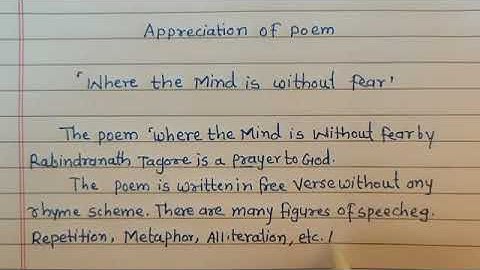 Appreciation of poem
'Where the Mind is without fear'
The poem 'where the Mind is Without fear by
Rabindranath Tagore is a prayer to God.
The poem is written in free verse without any
rhyme scheme. There are many figures of speech eg.
Repetition, Metaphor, Alliteration, etc. /